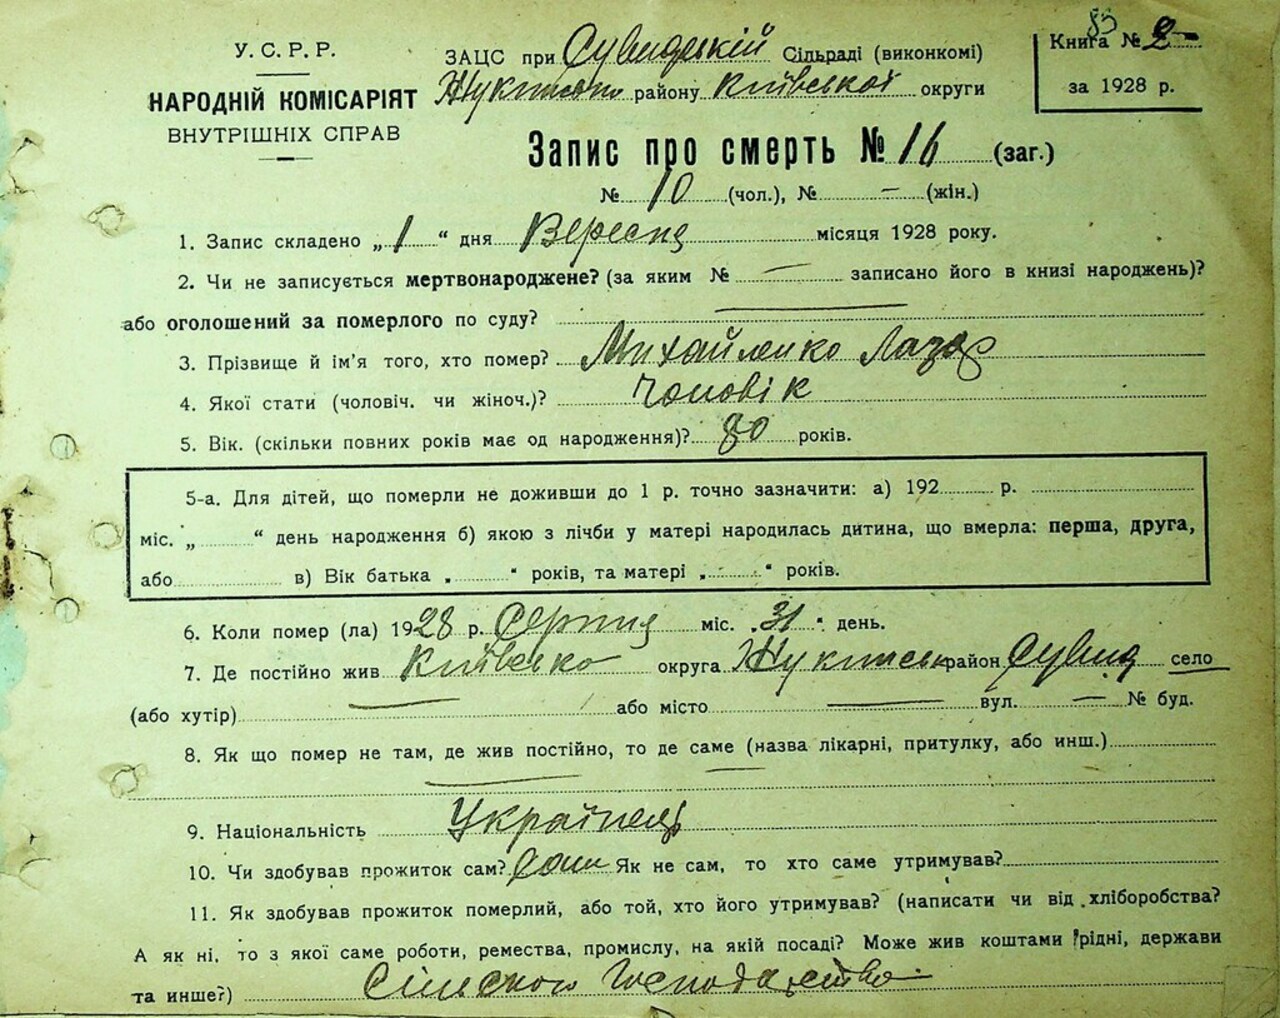 У.С.Р.Р.
НАРОДНІЙ КОМІСАРІЯТ
ВНУТРІШНІХ СПРАВ
ЗАЦС при Сувидській Сільраді (виконкомі)
Жукинськ району Київської округи
Книга № 2
за 1928 р.
Запис про смерть № 16 (заг.)
№ 10 (чол.), № — (жін.)
1. Запис складено „ 1 “ дня Вересня місяця 1928 року.
2. Чи не записується мертвонароджене? (за яким № — записано його в книзі народжень)?
або оголошений за померлого по суду? —
3. Прізвище й ім'я того, хто помер? Михайленко Лазар
4. Якої стати (чоловіч. чи жіноч.)? Чоловік
5. Вік. (скільки повних років має од народження)? 80 років.
5-а. Для дітей, що померли не доживши до 1 р. точно зазначити: а) 192 р.
міс. „ “ день народження б) якою з лічби у матері народилась дитина, що вмерла: перша, друга,
або в) Вік батька „ “ років, та матері „ “ років.
6. Коли помер (ла) 1928 р. Серпня міс. „ 31 “ день.
7. Де постійно жив Київсько округа Жукинськ район Сувид село
(або хутір) — або місто — вул. — № буд.
8. Як що помер не там, де жив постійно, то де саме (назва лікарні, притулку, або инш.)
— —
9. Національність Українець
10. Чи здобував прожиток сам? Сам Як не сам, то хто саме утримував?
11. Як здобував прожиток померлий, або той, хто його утримував? (написати чи від хліборобства?
А як ні, то з якої саме роботи, ремества, промислу, на якій посаді? Може жив коштами рідні, держави
та инше?) Сільского Господарство